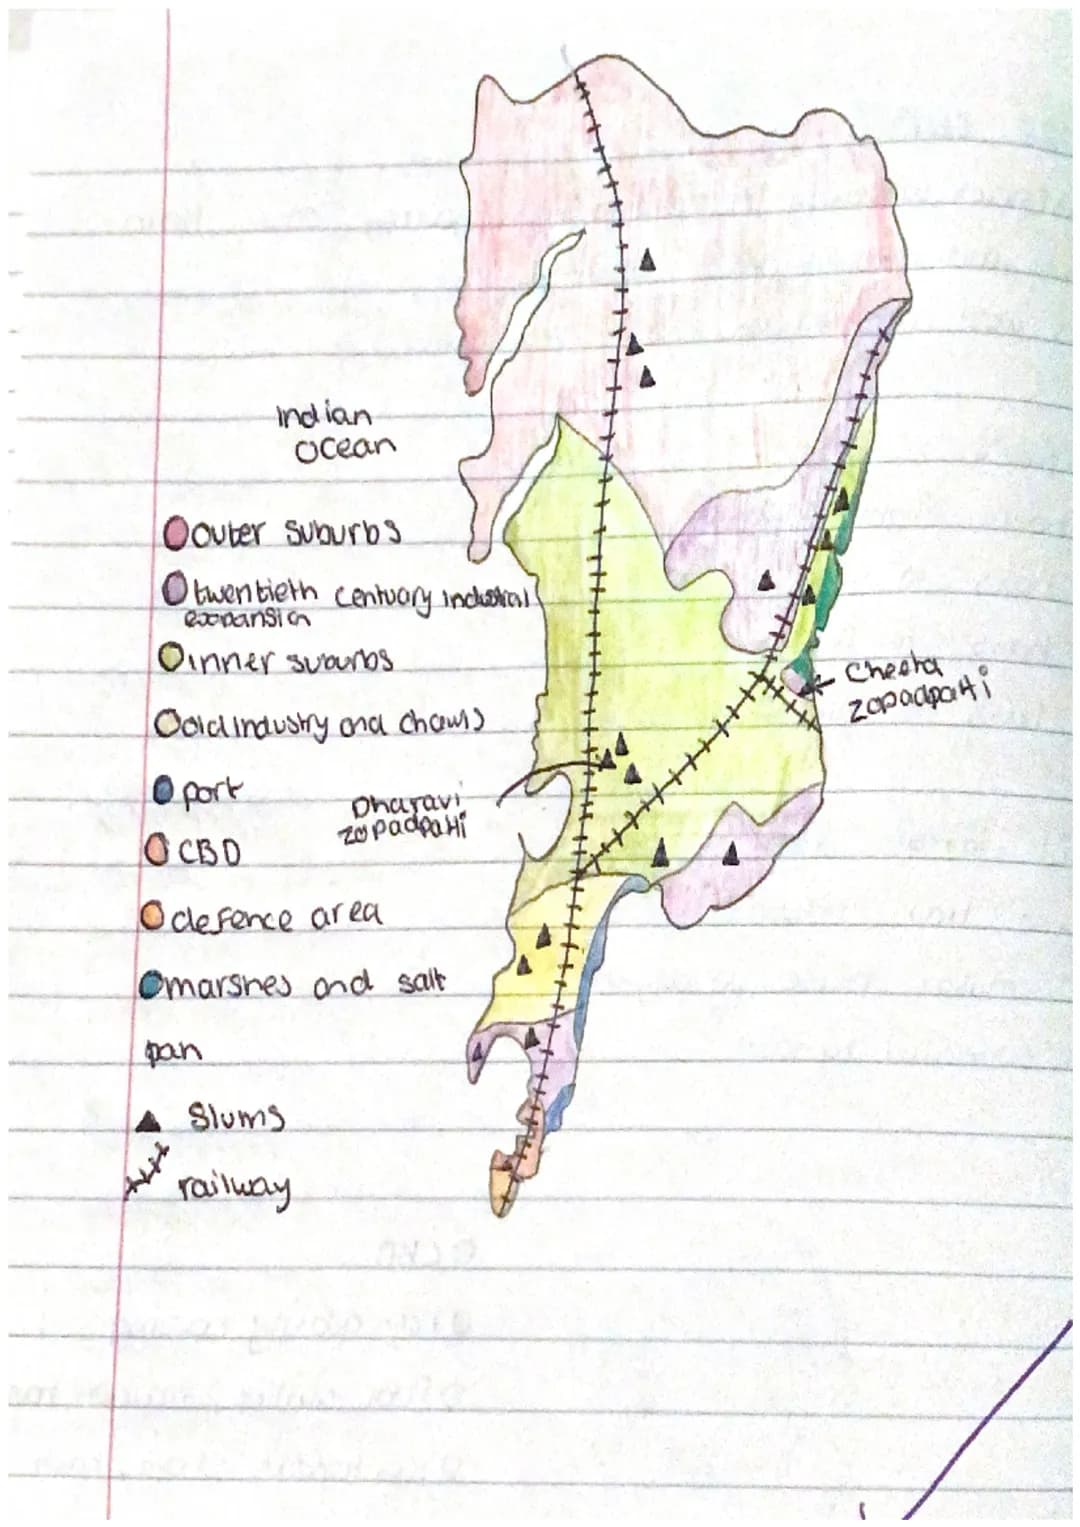 Indian
ocean
outer suburbs
twentieth centuary industral
expansion
inner suburbs
old industry and chawls
port
CBD
defence area
marshes and salt
pan
Slums
railway
Cheeta
zopadpatti
Dharavi
zopadpatti